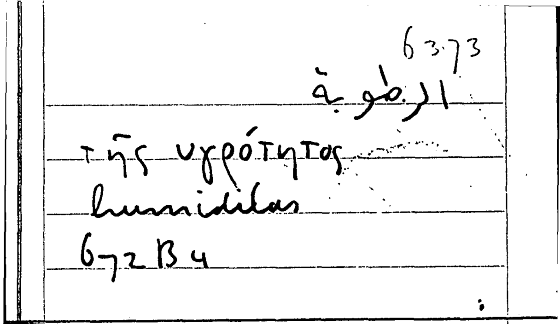 63.73
الرطوبة
τῆς υγρότητος
humiditas
672 B 4